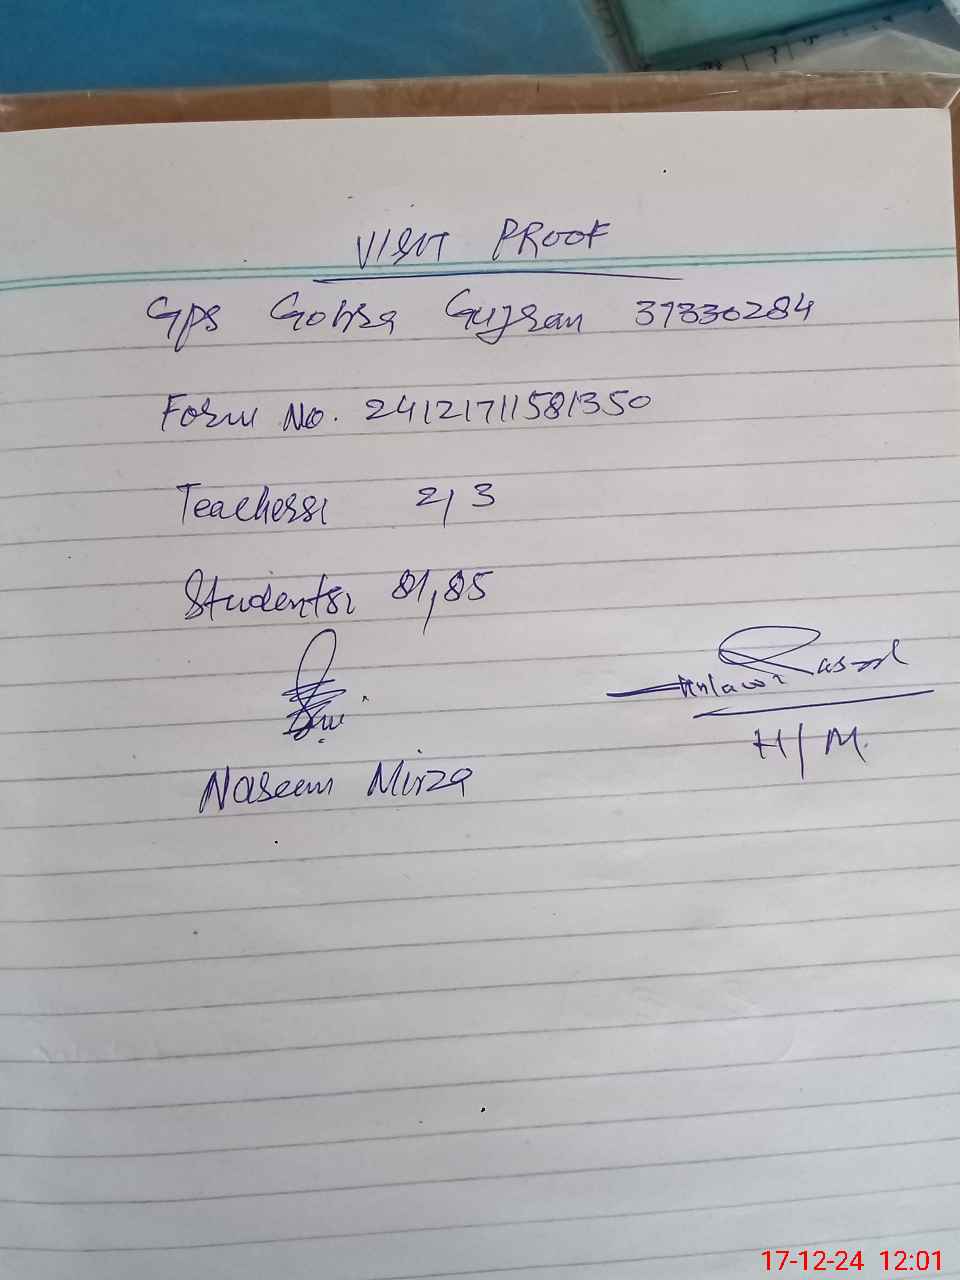 VISIT PROOF
Gps Gohra Gujran 37330284
Form No. 24121711581350
Teachers: 2, 3
Students: 81, 85
Rasool
H/M.
Naseem Mirza
17-12-24 12:01